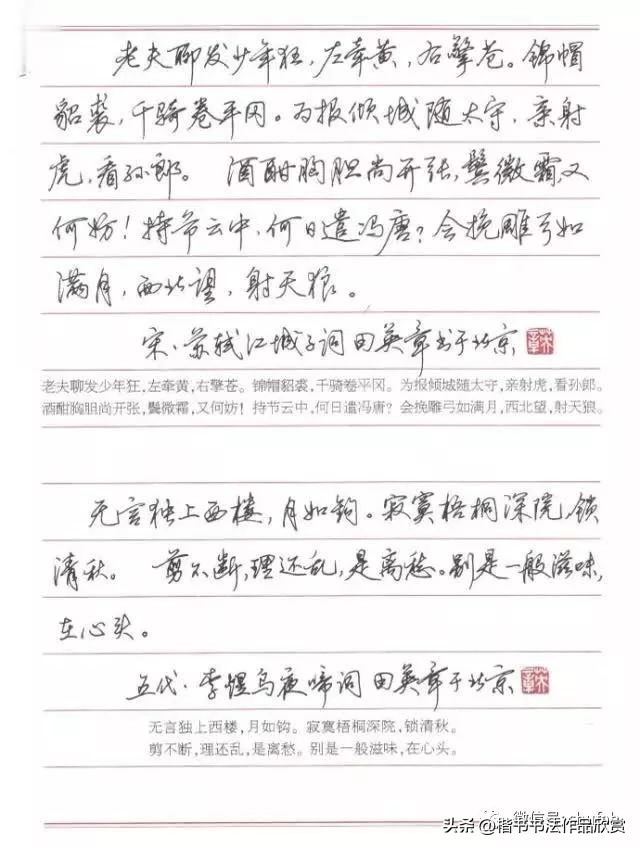 老夫聊发少年狂，左牵黄，右擎苍。锦帽
貂裘，千骑卷平冈。为报倾城随太守，亲射
虎，看孙郎。 酒酣胸胆尚开张，鬓微霜，又
何妨！持节云中，何日遣冯唐？会挽雕弓如
满月，西北望，射天狼。
宋·苏轼江城子词 田英章书于北京
老夫聊发少年狂，左牵黄，右擎苍。锦帽貂裘，千骑卷平冈。为报倾城随太守，亲射虎，看孙郎。
酒酣胸胆尚开张，鬓微霜，又何妨！持节云中，何日遣冯唐？会挽雕弓如满月，西北望，射天狼。
无言独上西楼，月如钩。寂寞梧桐深院，锁
清秋。 剪不断，理还乱，是离愁。别是一般滋味，
在心头。
五代·李煜乌夜啼词 田英章于北京
无言独上西楼，月如钩。寂寞梧桐深院，锁清秋。
剪不断，理还乱，是离愁。别是一般滋味，在心头。
微信号
头条@楷书书法作品欣赏